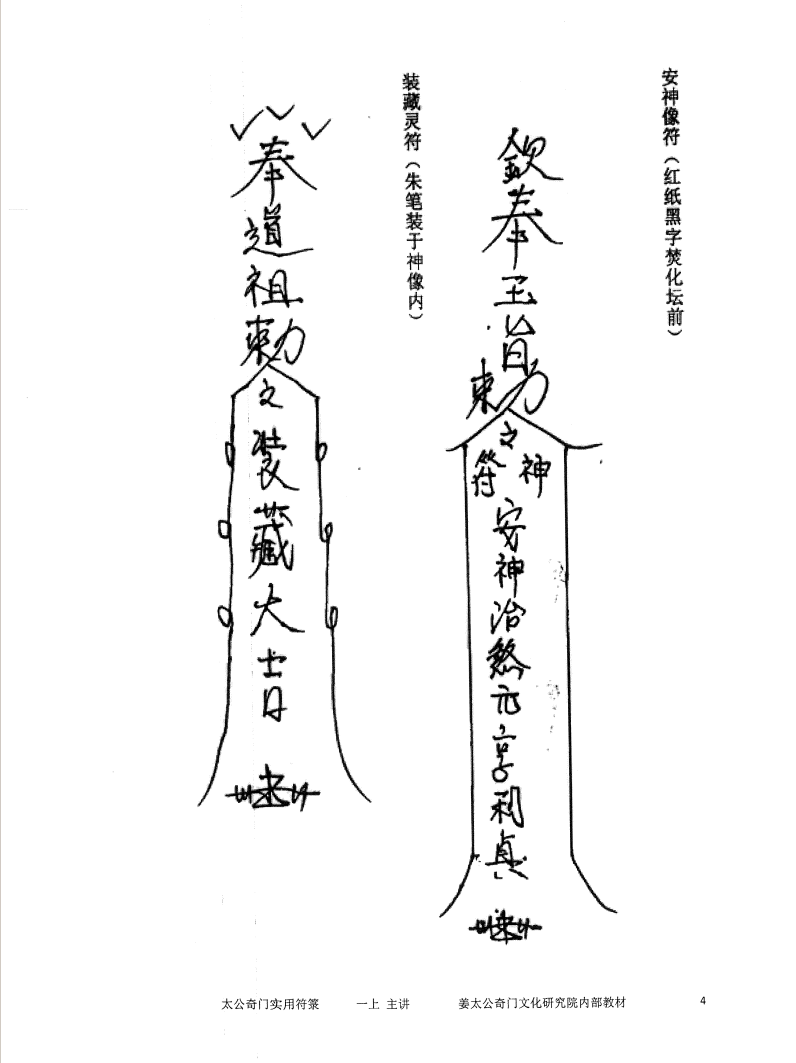 安神像符（红纸黑字焚化坛前）
钦奉玉旨
勅
之
神符
安神治煞元亨利貞
装藏灵符（朱笔装于神像内）
奉道祖勅
之装藏大吉日
太公奇门实用符箓 一上 主讲 姜太公奇门文化研究院内部教材 4